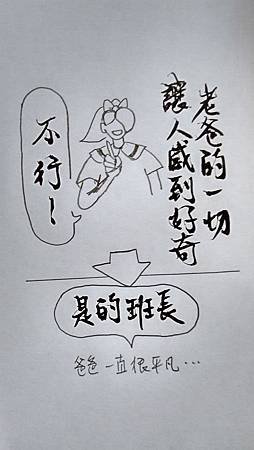 老爸的一切
讓人感到好奇
不行！
是的班長
爸爸一直很平凡…